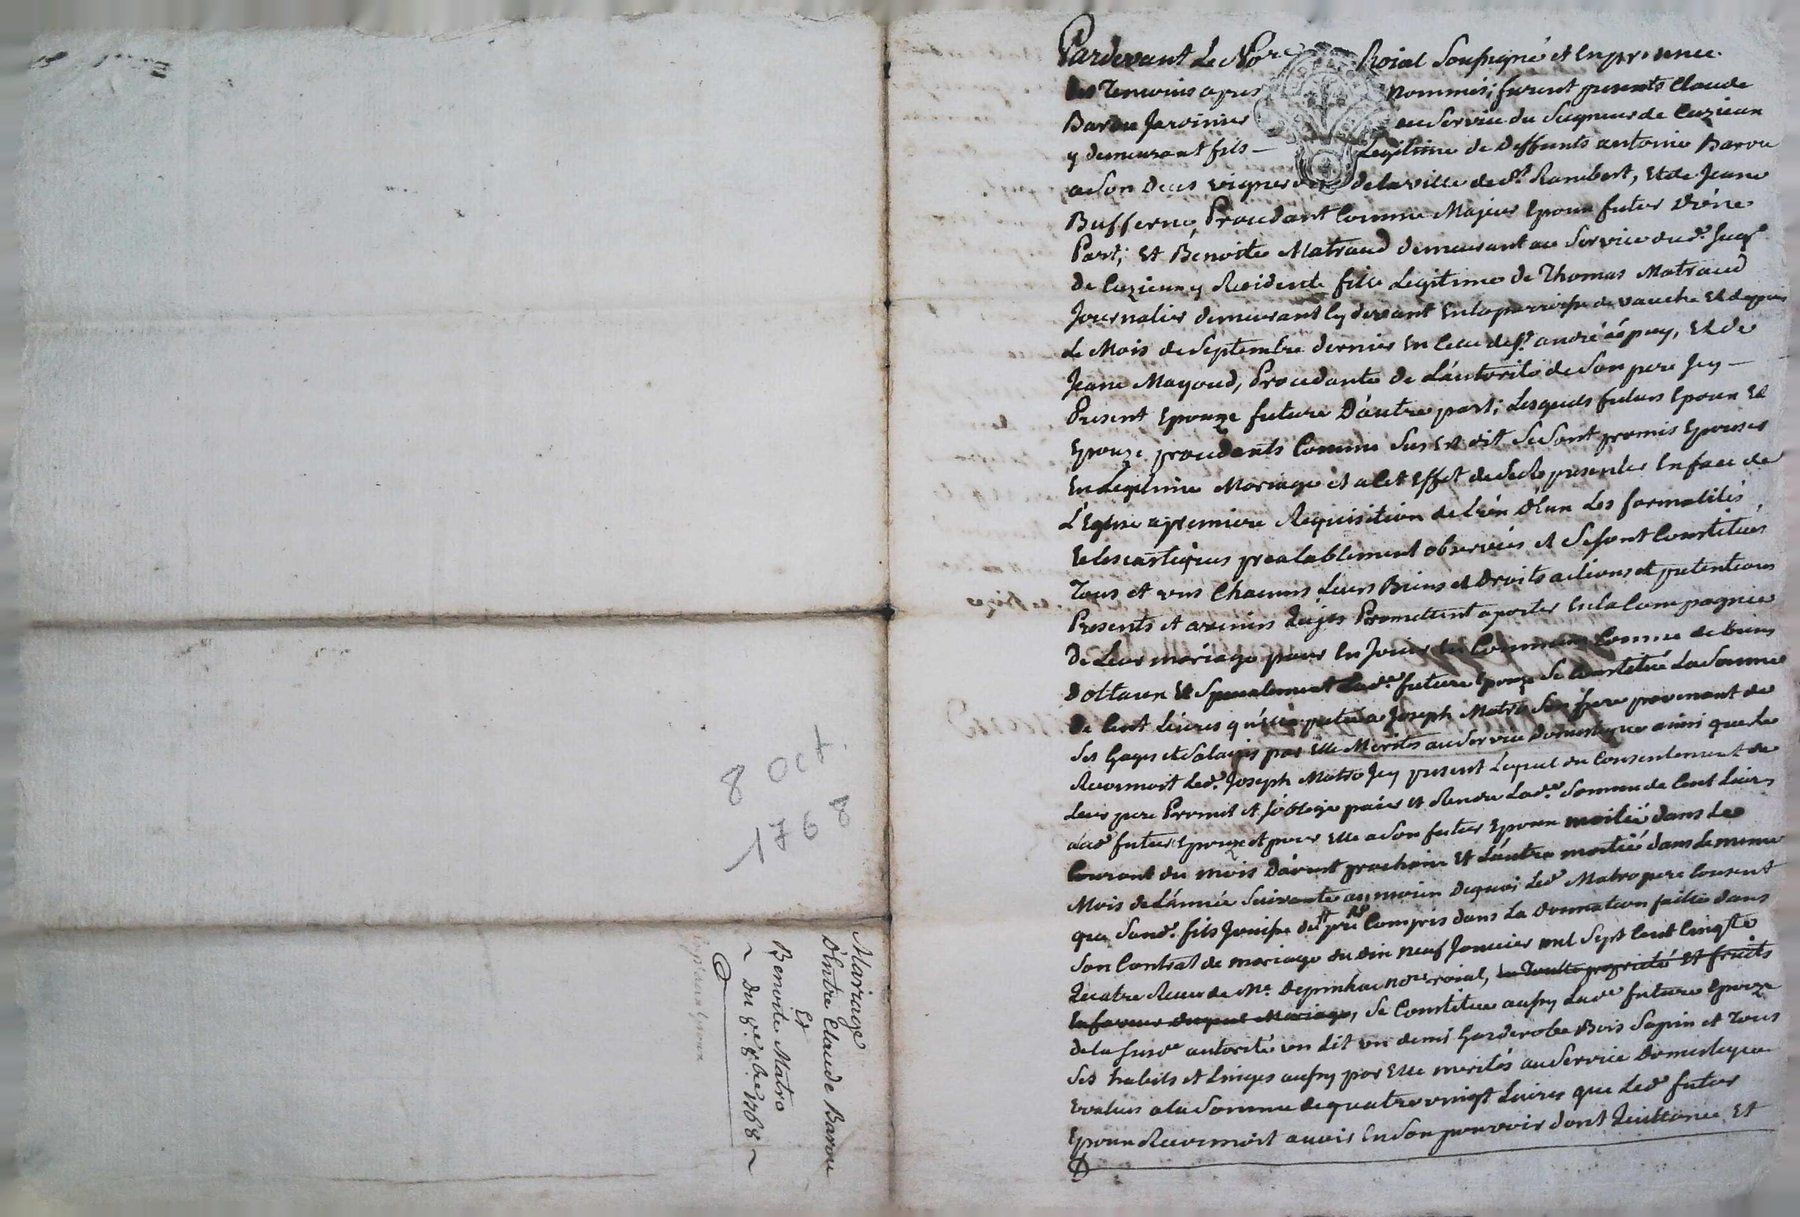 8 Oct
1768
Mariage
D'Entre Claude Barou
Et
Benoite Matro
~ Du 8e 8bre 1768 ~
Pardevant Le Nore Roial Soussigné et En presence
des Temoins apres nommés; furent presents Claude
Barou Jardinier au Service du Seigneur de Cuzieu
y demeurant fils Legitime de Deffunts antoine Barou
a Son Deces vigneron de la ville de St Rambert, Et de Jeane
Bufferne, Procedant Comme Majeur Epoux futur D'une
Part; Et Benoite Matraud demeurant au Service dud. Seigr
de Cuzieu y Residente fille Legitime de Thomas Matraud
Journalier demeurant cy devant En la parroisse de vauche Et depuis
Le Mois de Septembre dernier En Celle de St andré le puy, Et de
Jeane Mayoud, Procedante de L'autorité de Son pere Icy
Present Epouze future D'autre part; Lesquels futurs Epoux Et
Epouze procedants Comme Sus Est dit Se Sont promis Epouser
En Legitime Mariage et a Cet Effet de Se presenter En face de
L'Eglise a premiere Requisition de L'un D'Eux Les formalités
Ecclesiastiques prealablement observées et Se Sont Constitués
Tous et uns Chacuns Leurs Biens et Droits actions et pretentions
Presents et avenirs quils Promettent aporter En la Compagnie
De Leur mariage pour En Jouir Comme de Biens
dottaux Et Specialement Lade future Epouze Se Constitue La Somme
de Cent Livres qu'elle a Joseph Matro Son frere provenant de
Ses Gages et Salaires par Elle Merités au Service Domestique ainsi que Le
Reconnoit Led. Joseph Matro Icy present Lequel du Consentement de
Leur pere Promet et s'oblige paier et Rendre Lade Somme de Cent Livres
a lad. future Epouze et pour Elle a Son futur Epoux moitié dans Le
Courant du mois D'avent prochain Et L'autre moitié dans Le meme
Mois de L'année Suivante au moien dequoi Led. Matro pere Consent
que Sond. fils Jouisse Compris dans La Donnation faitte dans
Son Contrat de mariage du dix neuf Janvier mil Sept Cent Cinqte
Quatre Recu de Me Depinhac nore roial, en Toutte proprieté Et fruits
En faveur duquel Mariage, Se Constitue aussy Lade future Epouze
de la Susde autorité un Lit un demi Garderobe Bois Sapin et Tous
Ses habits et Linges aussy par Elle merités au Service Domestique
Evalués a la Somme de quatre vingt Livres que Led. futur
Epoux Reconnoit avoir En Son pouvoir dont Quittance Et